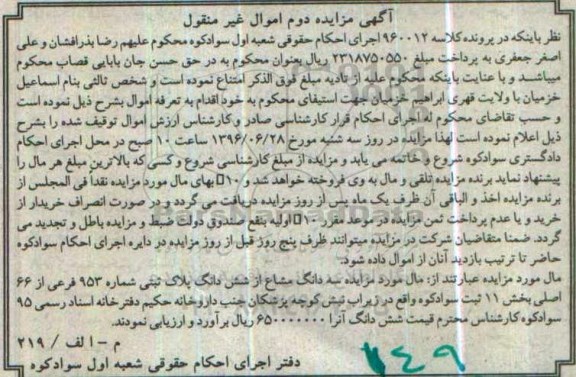 آگهی مزایده دوم اموال غیر منقول
نظر باینکه در پرونده کلاسه ۹۶۰۰۱۲ اجرای احکام حقوقی شعبه اول سوادکوه محکوم علیهم رضا بذرافشان و علی
اصغر جعفری به پرداخت مبلغ ۲۳۱۸۷۵۰۵۵۰ ریال بعنوان محکوم به در حق حسن جان بابایی قصاب محکوم
میباشند و با عنایت باینکه محکوم علیه از تادیه مبلغ فوق الذکر امتناع نموده است و شخص ثالثی بنام اسماعیل
خزمیان با ولایت قهری ابراهیم خزمیان جهت استیفای محکوم به خود اقدام به تعرفه اموال بشرح ذیل نموده است
و حسب تقاضای محکوم له اجرای احکام قرار کارشناسی صادر و کارشناس ارزش اموال توقیف شده را بشرح
ذیل اعلام نموده است لهذا مزایده در روز سه شنبه مورخ ۱۳۹۶/۰۶/۲۸ ساعت ۱۰ صبح در محل اجرای احکام
دادگستری سوادکوه شروع و خاتمه می یابد و مزایده از مبلغ کارشناسی شروع و کسی که بالاترین مبلغ هر مال را
پیشنهاد نماید برنده مزایده تلقی و مال به وی فروخته خواهد شد و ۱۰□ بهای مال مورد مزایده نقداً فی المجلس از
برنده مزایده اخذ و الباقی آن ظرف یک ماه پس از روز مزایده دریافت می گردد و در صورت انصراف خریدار از
خرید و یا عدم پرداخت ثمن مزایده در موعد مقرر ۱۰□ اولیه بنفع صندوق دولت ضبط و مزایده باطل و تجدید می
گردد. ضمنا متقاضیان شرکت در مزایده میتوانند ظرف پنج روز قبل از روز مزایده در دایره اجرای احکام سوادکوه
حاضر تا ترتیب بازدید آنان از اموال داده شود.
مال مورد مزایده عبارتند از: مال مورد مزایده سه دانگ مشاع از شش دانگ پلاک ثبتی شماره ۹۵۳ فرعی از ۶۶
اصلی بخش ۱۱ ثبت سوادکوه واقع در زیراب نبش کوچه پزشکان جنب داروخانه حکیم دفترخانه اسناد رسمی ۹۵
سوادکوه کارشناس محترم قیمت شش دانگ آنرا ۶۵۰۰۰۰۰۰۰۰ ریال برآورد و ارزیابی نمودند.
م - الف / ۲۱۹
دفتر اجرای احکام حقوقی شعبه اول سوادکوه